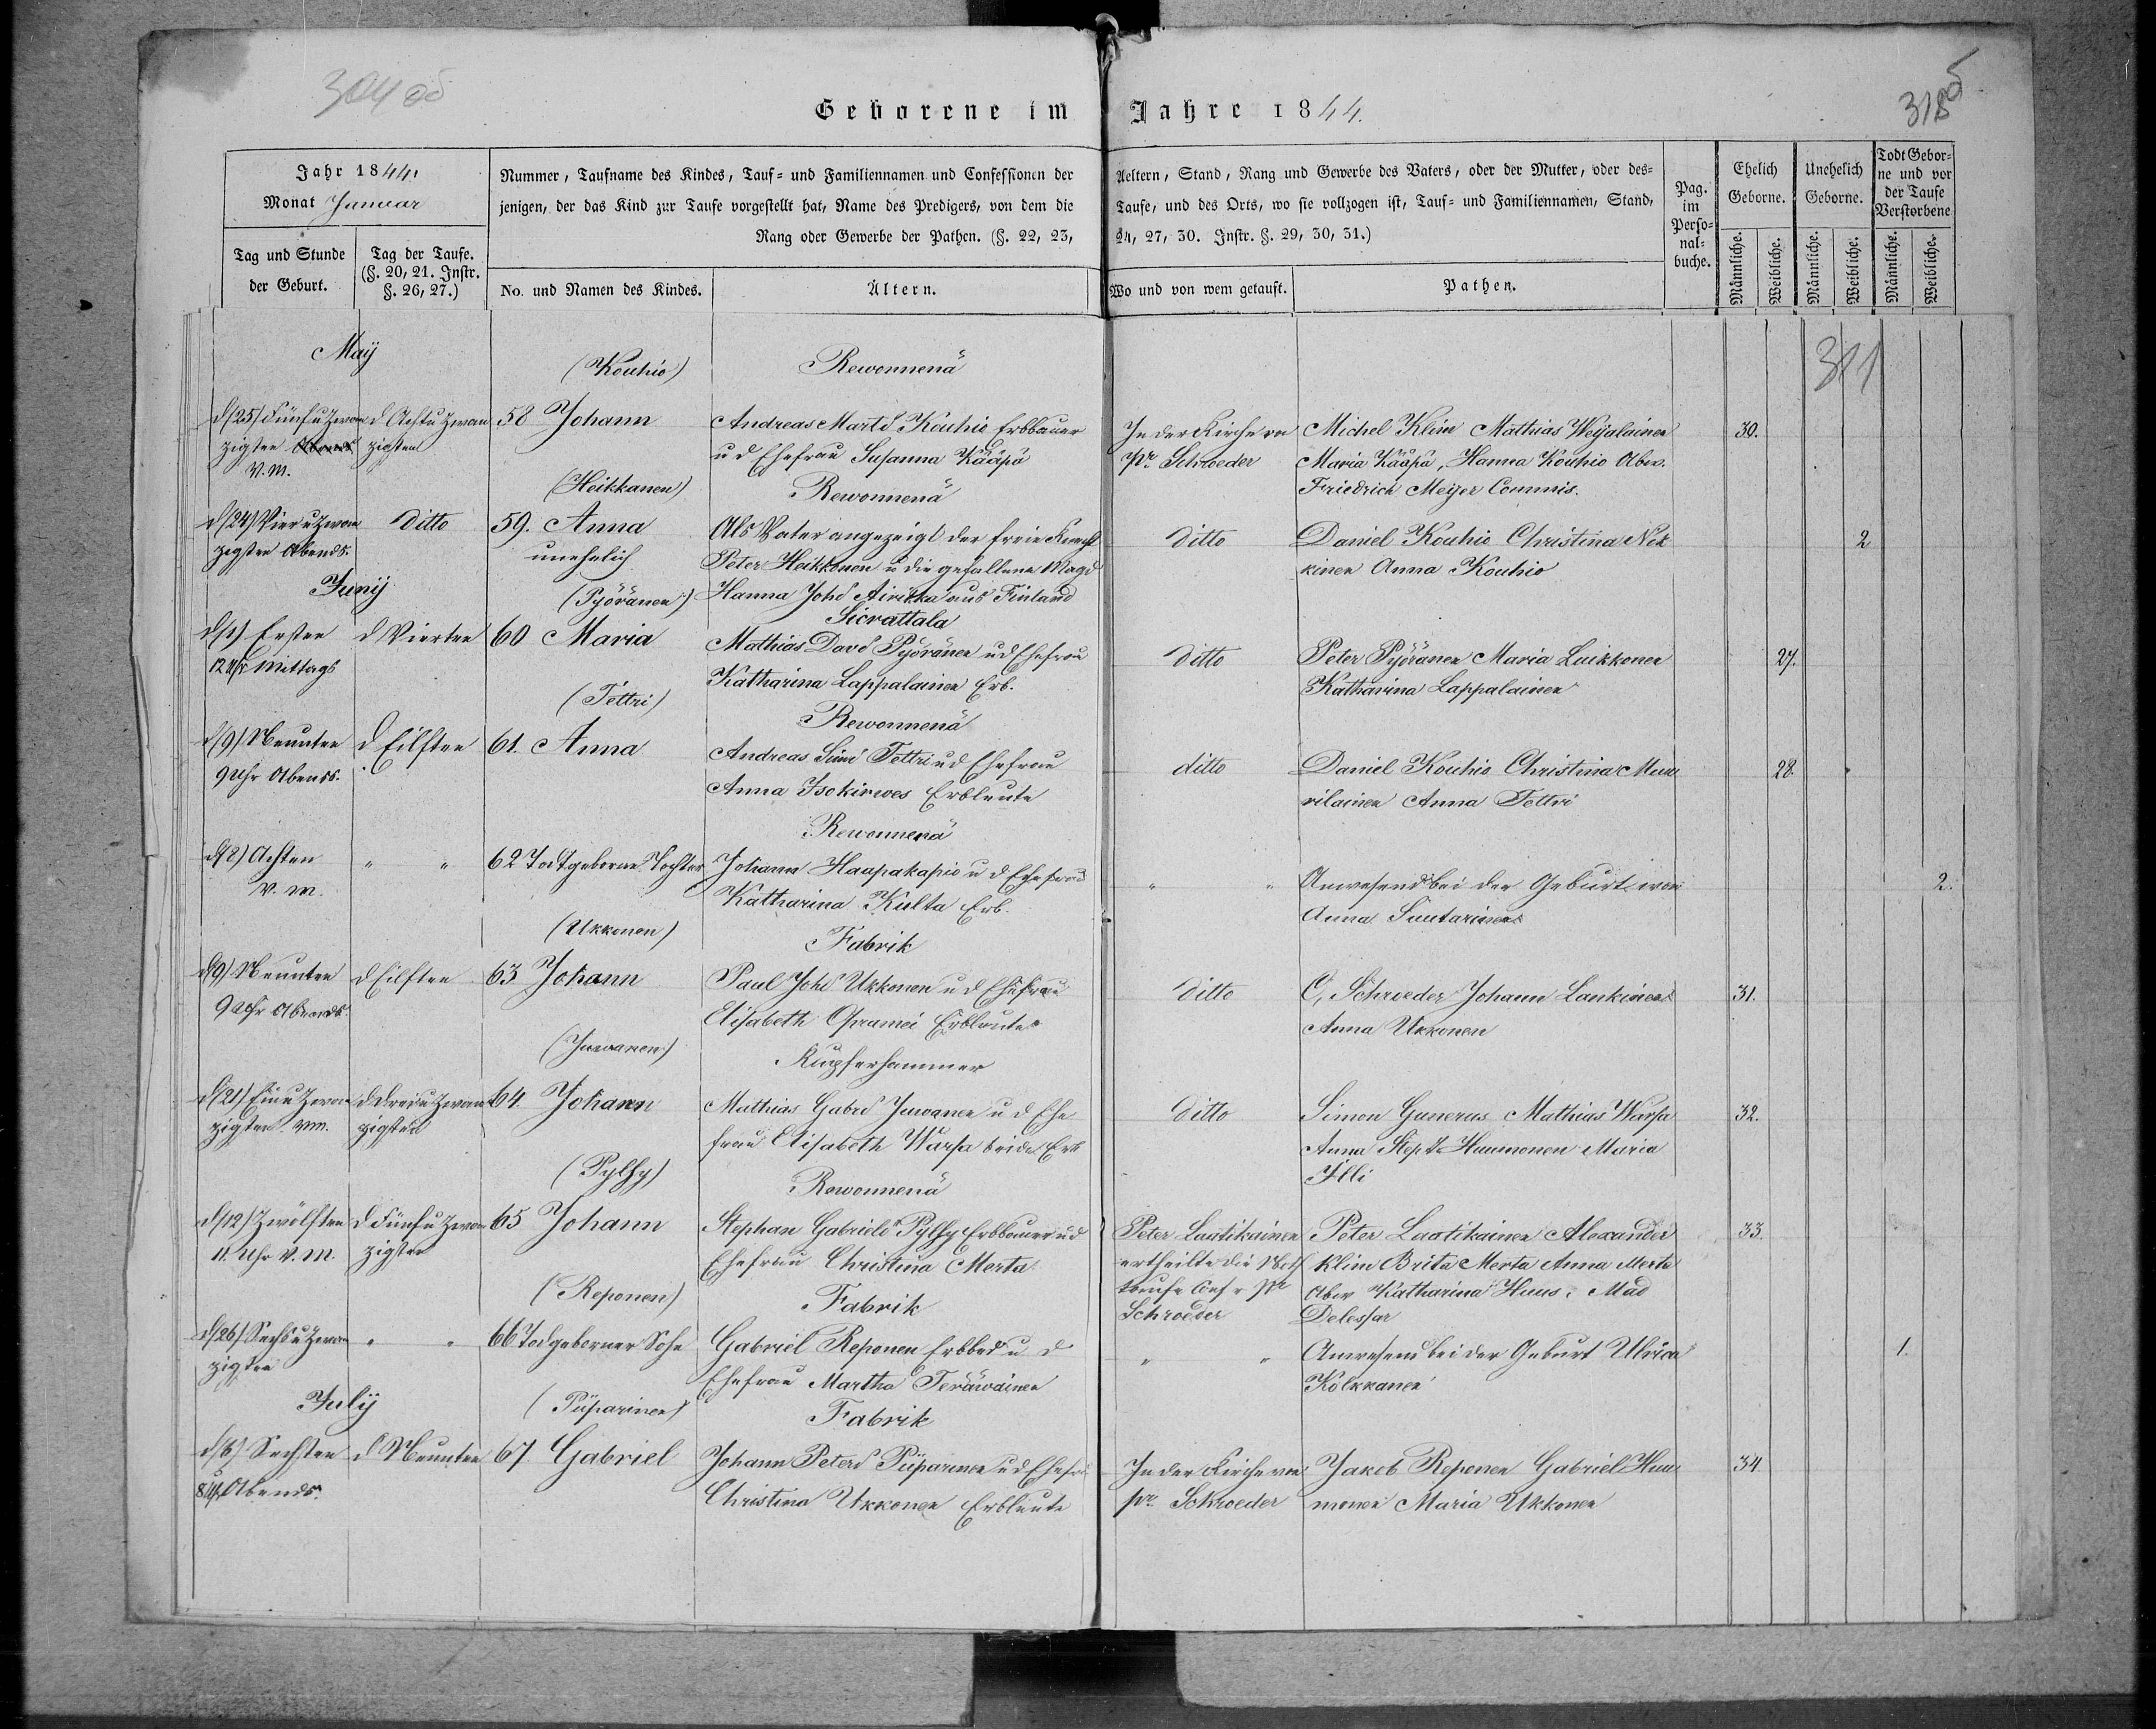 304 об
318 б
Geborene im Jahre 1844.
Jahr 1844.
Monat Januar
Nummer, Taufname des Kindes, Tauf- und Familiennamen und Confessionen der Aeltern, Stand, Rang und Gewerbe des Vaters, oder der Mutter, oder des-
jenigen, der das Kind zur Taufe vorgestellt hat, Name des Predigers, von dem die Taufe, und des Orts, wo sie vollzogen ist, Tauf- und Familiennamen, Stand,
Rang oder Gewerbe der Pathen. (§. 22, 23, 24, 27, 30. Instr. §. 29, 30, 31.)
Pag.
im
Perso-
nal-
buche.
Ehelich
Geborne.
Unehelich
Geborne.
Todt Gebor-
ne und vor
der Taufe
Verstorbene
Tag und Stunde
der Geburt.
Tag der Taufe.
(§. 20, 21. Instr.
§. 26, 27.)
No. und Namen des Kindes.
Ältern.
Wo und von wem getauft.
Pathen.
Männliche.
Weibliche.
Männliche.
Weibliche.
Männliche.
Weibliche.
311
Maÿ
(Kouhio)
Rewonnenä
d (25) Fünf u Zwan
zigsten Abends
V. M.
d Acht u Zwan
zigsten
58 Johann
Andreas Mart S Kouhio Erbbauer
u d Ehefrau Susanna Kääpä
In der Kirche von
Pr. Schroeder
Michel Klim Mathias Weijalainen
Maria Kääpä, Hanna Kouhio Aber.
Friedrich Meijer Commis.
30.
(Heikkanen)
Rewonnenä
d (24) Vier u Zwan
zigsten Abends.
ditto
59. Anna
unehelich
Als Vater angezeigt der freie Knecht
Peter Heikkonen u die gefallene Magd
Hanna Joh d Airikka aus Finland
ditto
Daniel Kouhio Christina Nok
kinen Anna Kouhio
2
Junij
(Pyöränen)
Sicrattala
d (1) Ersten
12 Uhr Mittags
d Vierten
60 Maria
Mathias Dav d Pyöränen u d Ehefrau
Katharina Lappalainen Erb.
ditto
Peter Pyöränen Maria Luikkonen
Katharina Lappalainen
27.
(Tettri)
Rewonnenä
d (9) Neunten
9 Uhr Abends.
d Eilften
61. Anna
Andreas Sim d Tettri u d Ehefrau
Anna Isokirwes Erbleute
ditto
Daniel Kouhio Christina Muu
rilainen Anna Tettri
28.
Rewonnenä
d (8) Achten
V. M.
" "
62 Todtgeborne Tochter
Johann Haapakapio u d Ehefrau
Katharina Kulta Erb.
" "
Anwesend bei der Geburt war
Anna Suutarinen
2.
(Ukkonen)
Fabrik
d (9) Neunten
9 Uhr Abends
d Eilften
63 Johann
Paul Joh d Ukkonen u d Ehefrau
Elisabeth Gramei Erbleute
ditto
C, Schroeder Johann Lankinen
Anna Ukkonen
31.
(Juwanen)
Kupferhammer
d (21) Ein u Zwan
zigsten V M.
d Drei u Zwan
zigsten
64. Johann
Mathias Gabr d Juwanen u d Ehe
frau Elisabeth Warsa beide Erb
ditto
Simon Gunerus Mathias Warsa
Anna Steph Huumonen Maria
Illi
32.
(Pylsy)
Rewonnenä
d (12) Zwölften
11. Uhr V. M.
d Fünf u Zwan
zigsten
65 Johann
Stephan Gabriels Pylsy Erbbauer u d
Ehefrau Christina Merta
Peter Lautikainen
ertheilte die Noth
taufe Conf v Pr
Schroeder
Peter Lautikainen Alexander
Klim Brita Merta Anna Merta
Aber Katharina Huus. Mad
Delessar
33.
(Reponen)
Fabrik
d (26) Sechs u Zwan
zigsten
" "
66 Todgeborner Sohn
Gabriel Reponen Erbbd u d
Ehefrau Martha Teräwäinen
" "
Anwesend bei der Geburt Ulrica
Kölkkänen
1.
Julij
(Püparinen)
Fabrik
d (6) Sechsten
8 Uhr Abends
d Neunten
67. Gabriel
Johann Peters Püparinen u d Ehefr
Christina Ukkonen Erbleute
In der Kirche von
pr. Schroeder
Jakob Reponen Gabriel Huu
monen Maria Ukkonen
34.